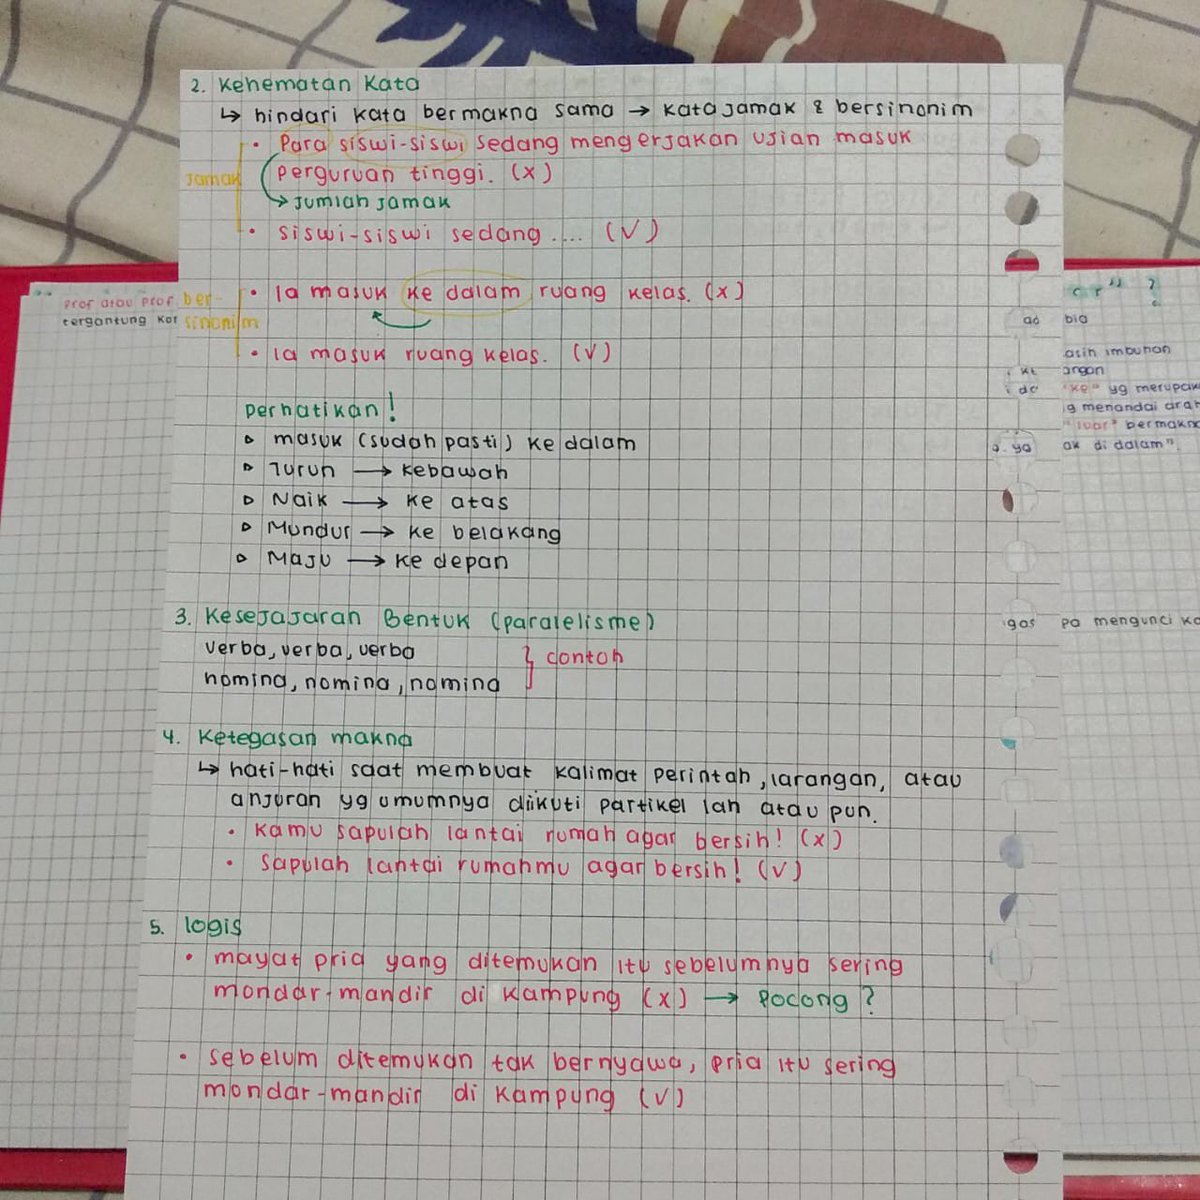 2. Kehematan Kata
↳ hindari kata bermakna sama → kata jamak & bersinonim
jamak
• Para siswi-siswi sedang mengerjakan ujian masuk
perguruan tinggi. (x)
→ Jumlah jamak
• siswi-siswi sedang .... (√)
bersinonim
• Ia masuk ke dalam ruang kelas. (x)
• Ia masuk ruang kelas. (√)
Perhatikan!
▹ masuk (sudah pasti) ke dalam
▹ Turun → kebawah
▹ Naik → ke atas
▹ Mundur → ke belakang
▹ Maju → ke depan
3. Kesejajaran Bentuk (paralelisme)
verba, verba, verba
nomina, nomina, nomina
} contoh
4. Ketegasan makna
↳ hati-hati saat membuat kalimat perintah, larangan, atau
anjuran yg umumnya diikuti partikel lah atau pun.
• Kamu sapulah lantai rumah agar bersih! (x)
• Sapulah lantai rumahmu agar bersih! (√)
5. logis
• mayat pria yang ditemukan itu sebelumnya sering
mondar-mandir di kampung (x) → Pocong?
• sebelum ditemukan tak bernyawa, pria itu sering
mondar-mandir di kampung (√)
Prof atau Prof.
tergantung
imbuhan
"ke" yg merupak
menandai arah
"luar" bermakna
di dalam".
mengunci